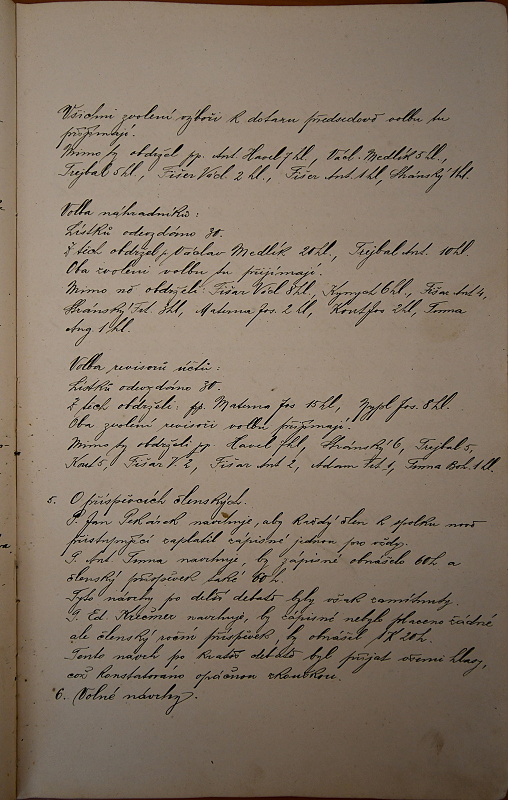 Všichni zvolení výboři k dotazu předsedově volbu tu
přijímají.
Mimo ty obdržel pp. Ant. Havel 7 hl., Václ. Medlík 5 hl.,
Trejbal 5 hl., Fišer Václ. 2 hl., Fišer Ant. 1 hl, Stránský 1 hl.
Volba náhradníků:
Lístků odevzdáno 30.
Z těch obdržel p. Václav Medlík 20 hl., Trejbal Ant. 10 hl.
Oba zvolení volbu tu přijímají.
Mimo ně obdrželi: Fišar Václ 8 hl., Kynycl 6 hl., Fišar Ant 4,
Stránský Fr. 3 hl., Materna Jos. 2 hl, Kout Jos 2 hl, Toma
Aug 1 hl.
Volba revisorů účtů:
Lístků odevzdáno 30.
Z těch obdrželi: pp. Materna Jos 15 hl., Zypl Jos. 8 hl.
Oba zvolení revisoři volbu přijímají.
Mimo ty obdrželi pp. Havel 7 hl., Stránský 6, Trejbal 5,
Kout 5, Fišar V. 2, Fišar Ant 2, Adam 1, Toma Boh. 1 hl.
5. O příspěvcích členských.
P. Jan Pekárek navrhuje, aby každý člen k spolku nově
přistupující zaplatil zápisné jednou pro vždy.
P. Ant. Toma navrhuje, by zápisné obnášelo 60 h a
členský příspěvek také 60 h.
Tyto návrhy po delší debatě byly však zamítnuty.
P. Ed. Krečmer navrhuje, by zápisné nebylo placeno žádné
ale členský roční příspěvek, by obnášel 1 K 20 h.
Tento návrh po krátké debatě byl přijat všemi hlasy,
což konstatováno opáčnou zkouškou.
6. Volné návrhy.